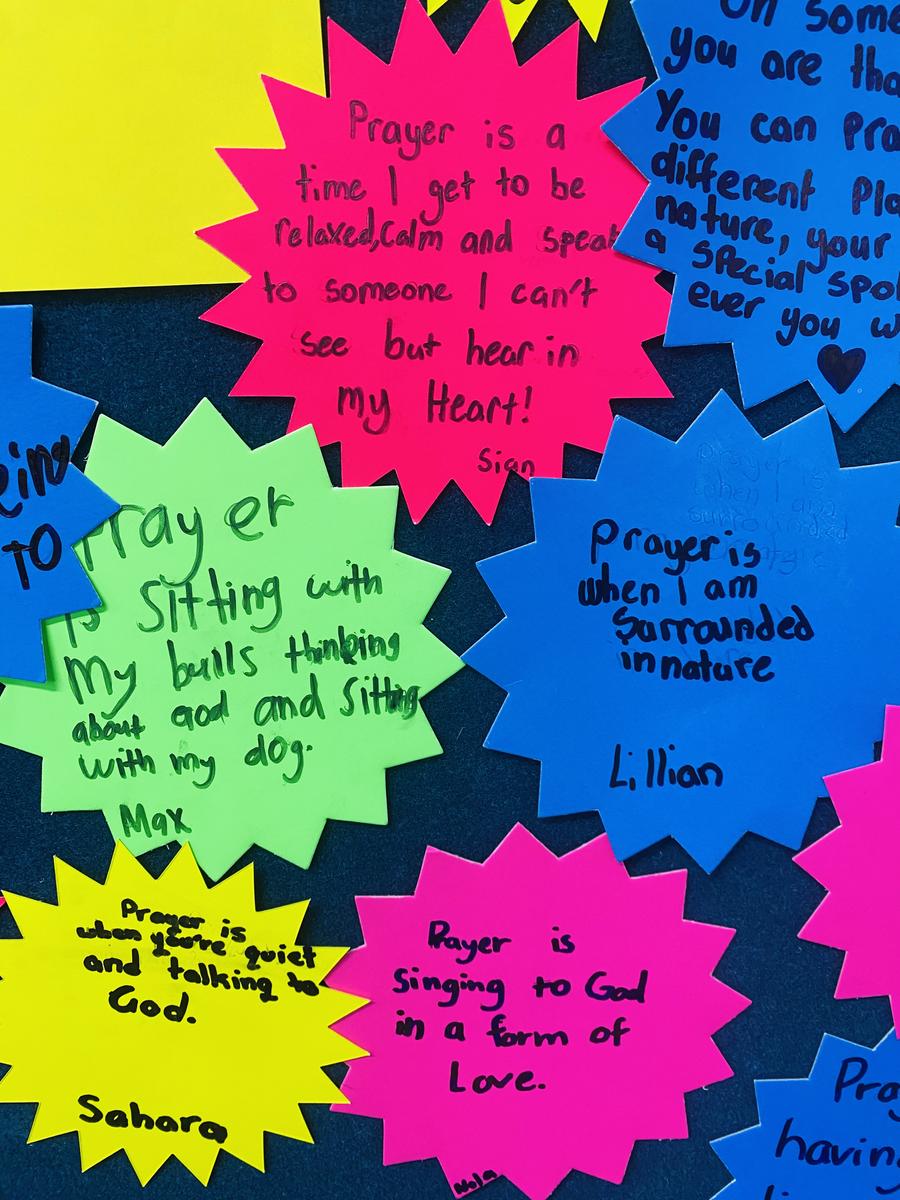 Prayer is a
time I get to be
relaxed, calm and speak
to someone I can't
see but hear in
my Heart!
Sian
on some
you are tha
You can pra
different pla
nature, your
a special spo
ever you w
ein
TO
Prayer
is sitting with
My bulls thinking
about God and sitting
with my dog.
Max
Prayer is
when I am
Surrounded
in nature
Lillian
Prayer is
when you're quiet
and talking to
God.
Sahara
Prayer is
singing to God
in a form of
Love.
Nola
Pra
havin